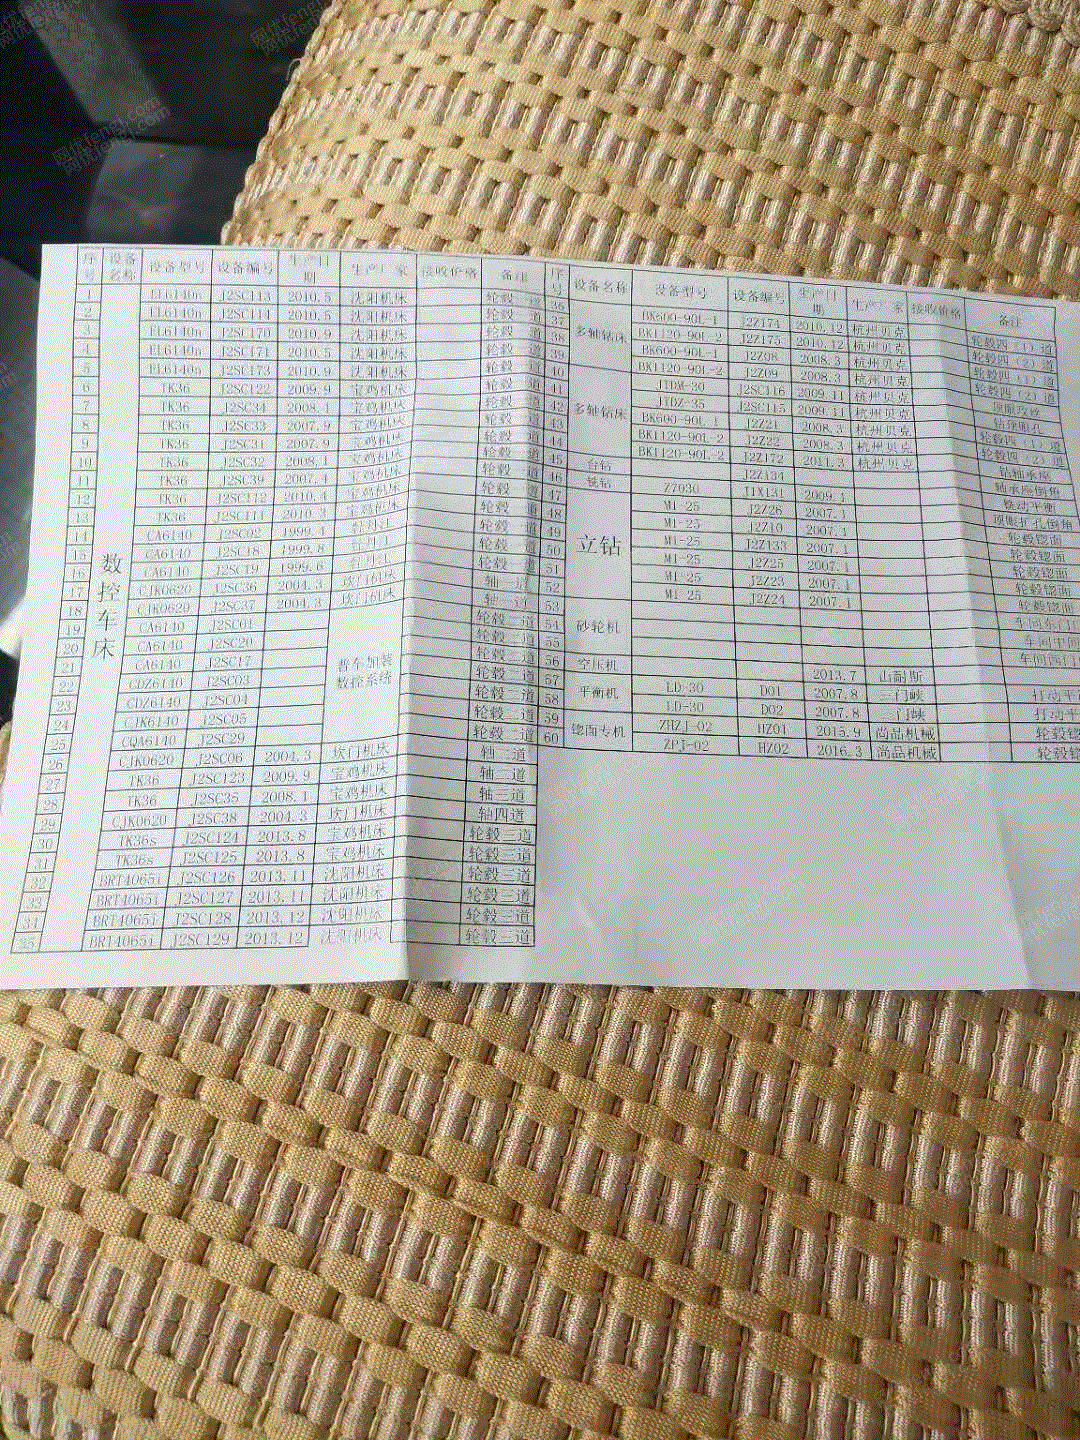 序号 设备名称 设备型号 设备编号 生产日期 生产厂家 接收价格 备注
数控车床
1 EL6140n J2SC113 2010.5 沈阳机床 轮毂 道
2 EL6140n J2SC114 2010.5 沈阳机床 轮毂 道
3 EL6140n J2SC170 2010.9 沈阳机床 轮毂 道
4 EL6140n J2SC171 2010.5 沈阳机床 轮毂 道
5 EL6140n J2SC173 2010.9 沈阳机床 轮毂 道
6 TK36 J2SC122 2009.9 宝鸡机床 轮毂 道
7 TK36 J2SC34 2008.1 宝鸡机床 轮毂 道
8 TK36 J2SC33 2007.9 宝鸡机床 轮毂 道
9 TK36 J2SC31 2007.9 宝鸡机床 轮毂 道
10 TK36 J2SC32 2008.1 宝鸡机床 轮毂 道
11 TK36 J2SC39 2007.4 宝鸡机床 轮毂 道
12 TK36 J2SC112 2010.4 宝鸡机床 轮毂 道
13 TK36 J2SC111 2010.3 宝鸡机床 轮毂 道
14 CA6140 J2SC02 1999.4 牡丹江 轮毂 道
15 CA6140 J2SC18 1999.8 牡丹江 轮毂 道
16 CA6140 J2SC19 1999.6 牡丹江 轴一道
17 CJK0620 J2SC36 2004.3 坎门机床 轴一道
18 CJK0620 J2SC37 2004.3 坎门机床 轮毂二道
19 CA6140 J2SC01 轮毂二道
20 CA6140 J2SC20 轮毂二道
21 CA6140 J2SC17 轮毂二道
普车加装
数控系统
22 CDZ6140 J2SC03 轮毂二道
23 CDZ6140 J2SC04 轮毂二道
24 CJK6140 J2SC05 轮毂二道
25 CQA6140 J2SC29
26 CJK0620 J2SC06 2004.3 坎门机床 轴二道
27 TK36 J2SC123 2009.9 宝鸡机床 轴二道
28 TK36 J2SC35 2008.1 宝鸡机床 轴三道
29 CJK0620 J2SC38 2004.3 坎门机床 轴四道
30 TK36s J2SC124 2013.8 宝鸡机床 轮毂三道
31 TK36s J2SC125 2013.8 宝鸡机床 轮毂三道
32 BRT4065i J2SC126 2013.11 沈阳机床 轮毂三道
33 BRT4065i J2SC127 2013.11 沈阳机床 轮毂三道
34 BRT4065i J2SC128 2013.12 沈阳机床 轮毂三道
35 BRT4065i J2SC129 2013.12 沈阳机床 轮毂三道
序号 设备名称 设备型号 设备编号 生产日期 生产厂家 接收价格 备注
36 BK600-90L-1 J2Z174 2010.12 杭州贝克 轮毂四（1）道
37 多轴钻床 BK1120-90L-2 J2Z175 2010.12 杭州贝克 轮毂四（2）道
38 BK600-90L-1 J2Z08 2008.3 杭州贝克 轮毂四（1）道
39 BK1120-90L-2 J2Z09 2008.3 杭州贝克 轮毂四（2）道
40 JTDM-30 J2SC116 2009.11 杭州贝克 顶眼攻丝
41 JTDZ-35 J2SC115 2009.11 杭州贝克 钻顶眼孔
42 多轴钻床 BK600-90L-1 J2Z21 2008.3 杭州贝克 轮毂四（1）道
43 BK1120-90L-2 J2Z22 2008.3 杭州贝克 轮毂四（2）道
44 BK1120-90L-2 J2Z172 2011.3 杭州贝克 钻轴承座
45 台钻 J2Z134 轴承座倒角
46 铣钻 Z7030 J1X131 2009.1 铣动平衡
47 M1-25 J2Z26 2007.1 顶眼扩孔倒角
48 M1-25 J2Z10 2007.1 轮毂锪面
49 立钻 M1-25 J2Z133 2007.1 轮毂锪面
50 M1-25 J2Z25 2007.1 轮毂锪面
51 M1-25 J2Z23 2007.1 轮毂锪面
52 M1-25 J2Z24 2007.1 轮毂锪面
53 车间东门口
54 砂轮机 车间中间
55 车间西门
56 空压机 2013.7 山耐斯
57 平衡机 LD-30 D01 2007.8 三门峡 打动平
58 LD-30 D02 2007.8 三门峡 打动平
59 锪面专机 ZHZJ-02 HZ01 2015.9 尚品机械 轮毂锪
60 ZPJ-02 HZ02 2016.3 尚品机械 轮毂锪